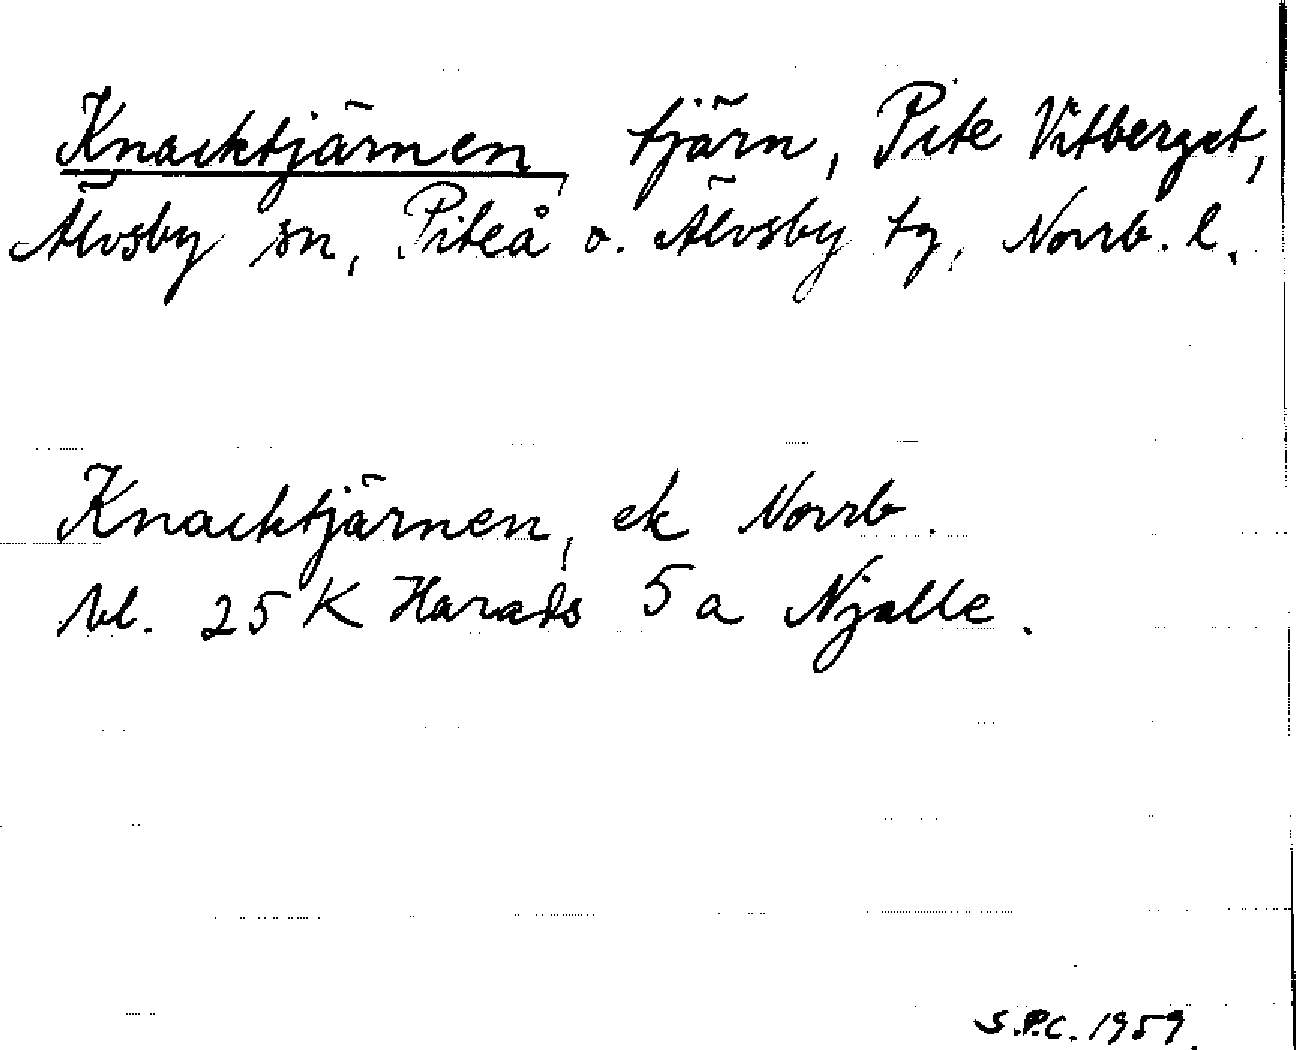 Knacktjärnen tjärn, Pite Vitberget,
Älvsby sn, Piteå o. Älvsby tg, Norrb. l.
Knacktjärnen, ek Norrb.
bl. 25 K Harads 5 a Njalle.
S.P.C. 1959.